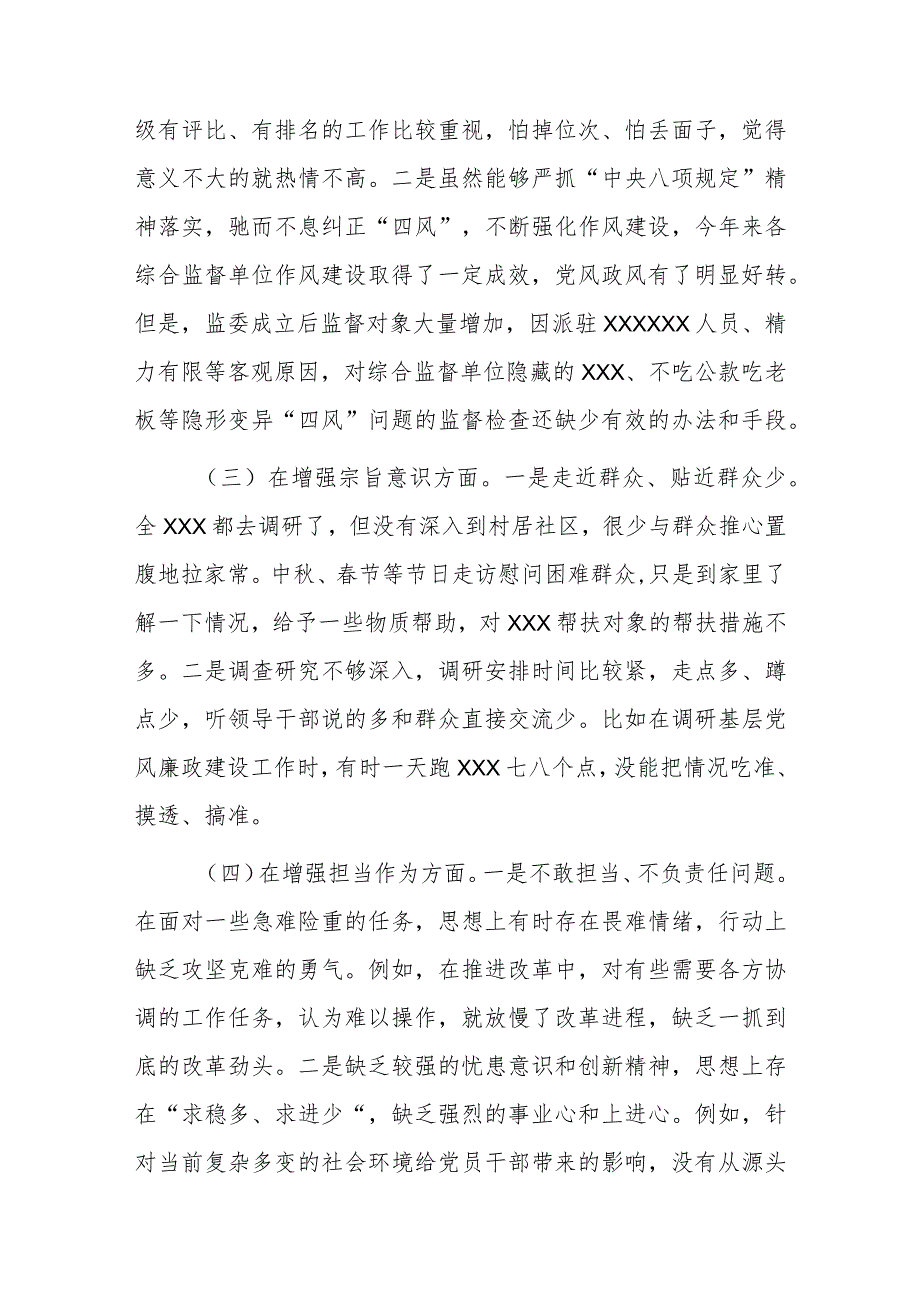 级有评比、有排名的工作比较重视，怕掉位次、怕丢面子，觉得
意义不大的就热情不高。二是虽然能够严抓“中央八项规定”精
神落实，驰而不息纠正“四风”，不断强化作风建设，今年来各
综合监督单位作风建设取得了一定成效，党风政风有了明显好转。
但是，监委成立后监督对象大量增加，因派驻 XXXXXX 人员、精
力有限等客观原因，对综合监督单位隐藏的 XXX、不吃公款吃老
板等隐形变异“四风”问题的监督检查还缺少有效的办法和手段。
（三）在增强宗旨意识方面。一是走近群众、贴近群众少。
全 XXX 都去调研了，但没有深入到村居社区，很少与群众推心置
腹地拉家常。中秋、春节等节日走访慰问困难群众,只是到家里了
解一下情况，给予一些物质帮助，对 XXX 帮扶对象的帮扶措施不
多。二是调查研究不够深入，调研安排时间比较紧，走点多、蹲
点少，听领导干部说的多和群众直接交流少。比如在调研基层党
风廉政建设工作时，有时一天跑 XXX 七八个点，没能把情况吃准、
摸透、搞准。
（四）在增强担当作为方面。一是不敢担当、不负责任问题。
在面对一些急难险重的任务，思想上有时存在畏难情绪，行动上
缺乏攻坚克难的勇气。例如，在推进改革中，对有些需要各方协
调的工作任务，认为难以操作，就放慢了改革进程，缺乏一抓到
底的改革劲头。二是缺乏较强的忧患意识和创新精神，思想上存
在“求稳多、求进少“，缺乏强烈的事业心和上进心。例如，针
对当前复杂多变的社会环境给党员干部带来的影响，没有从源头